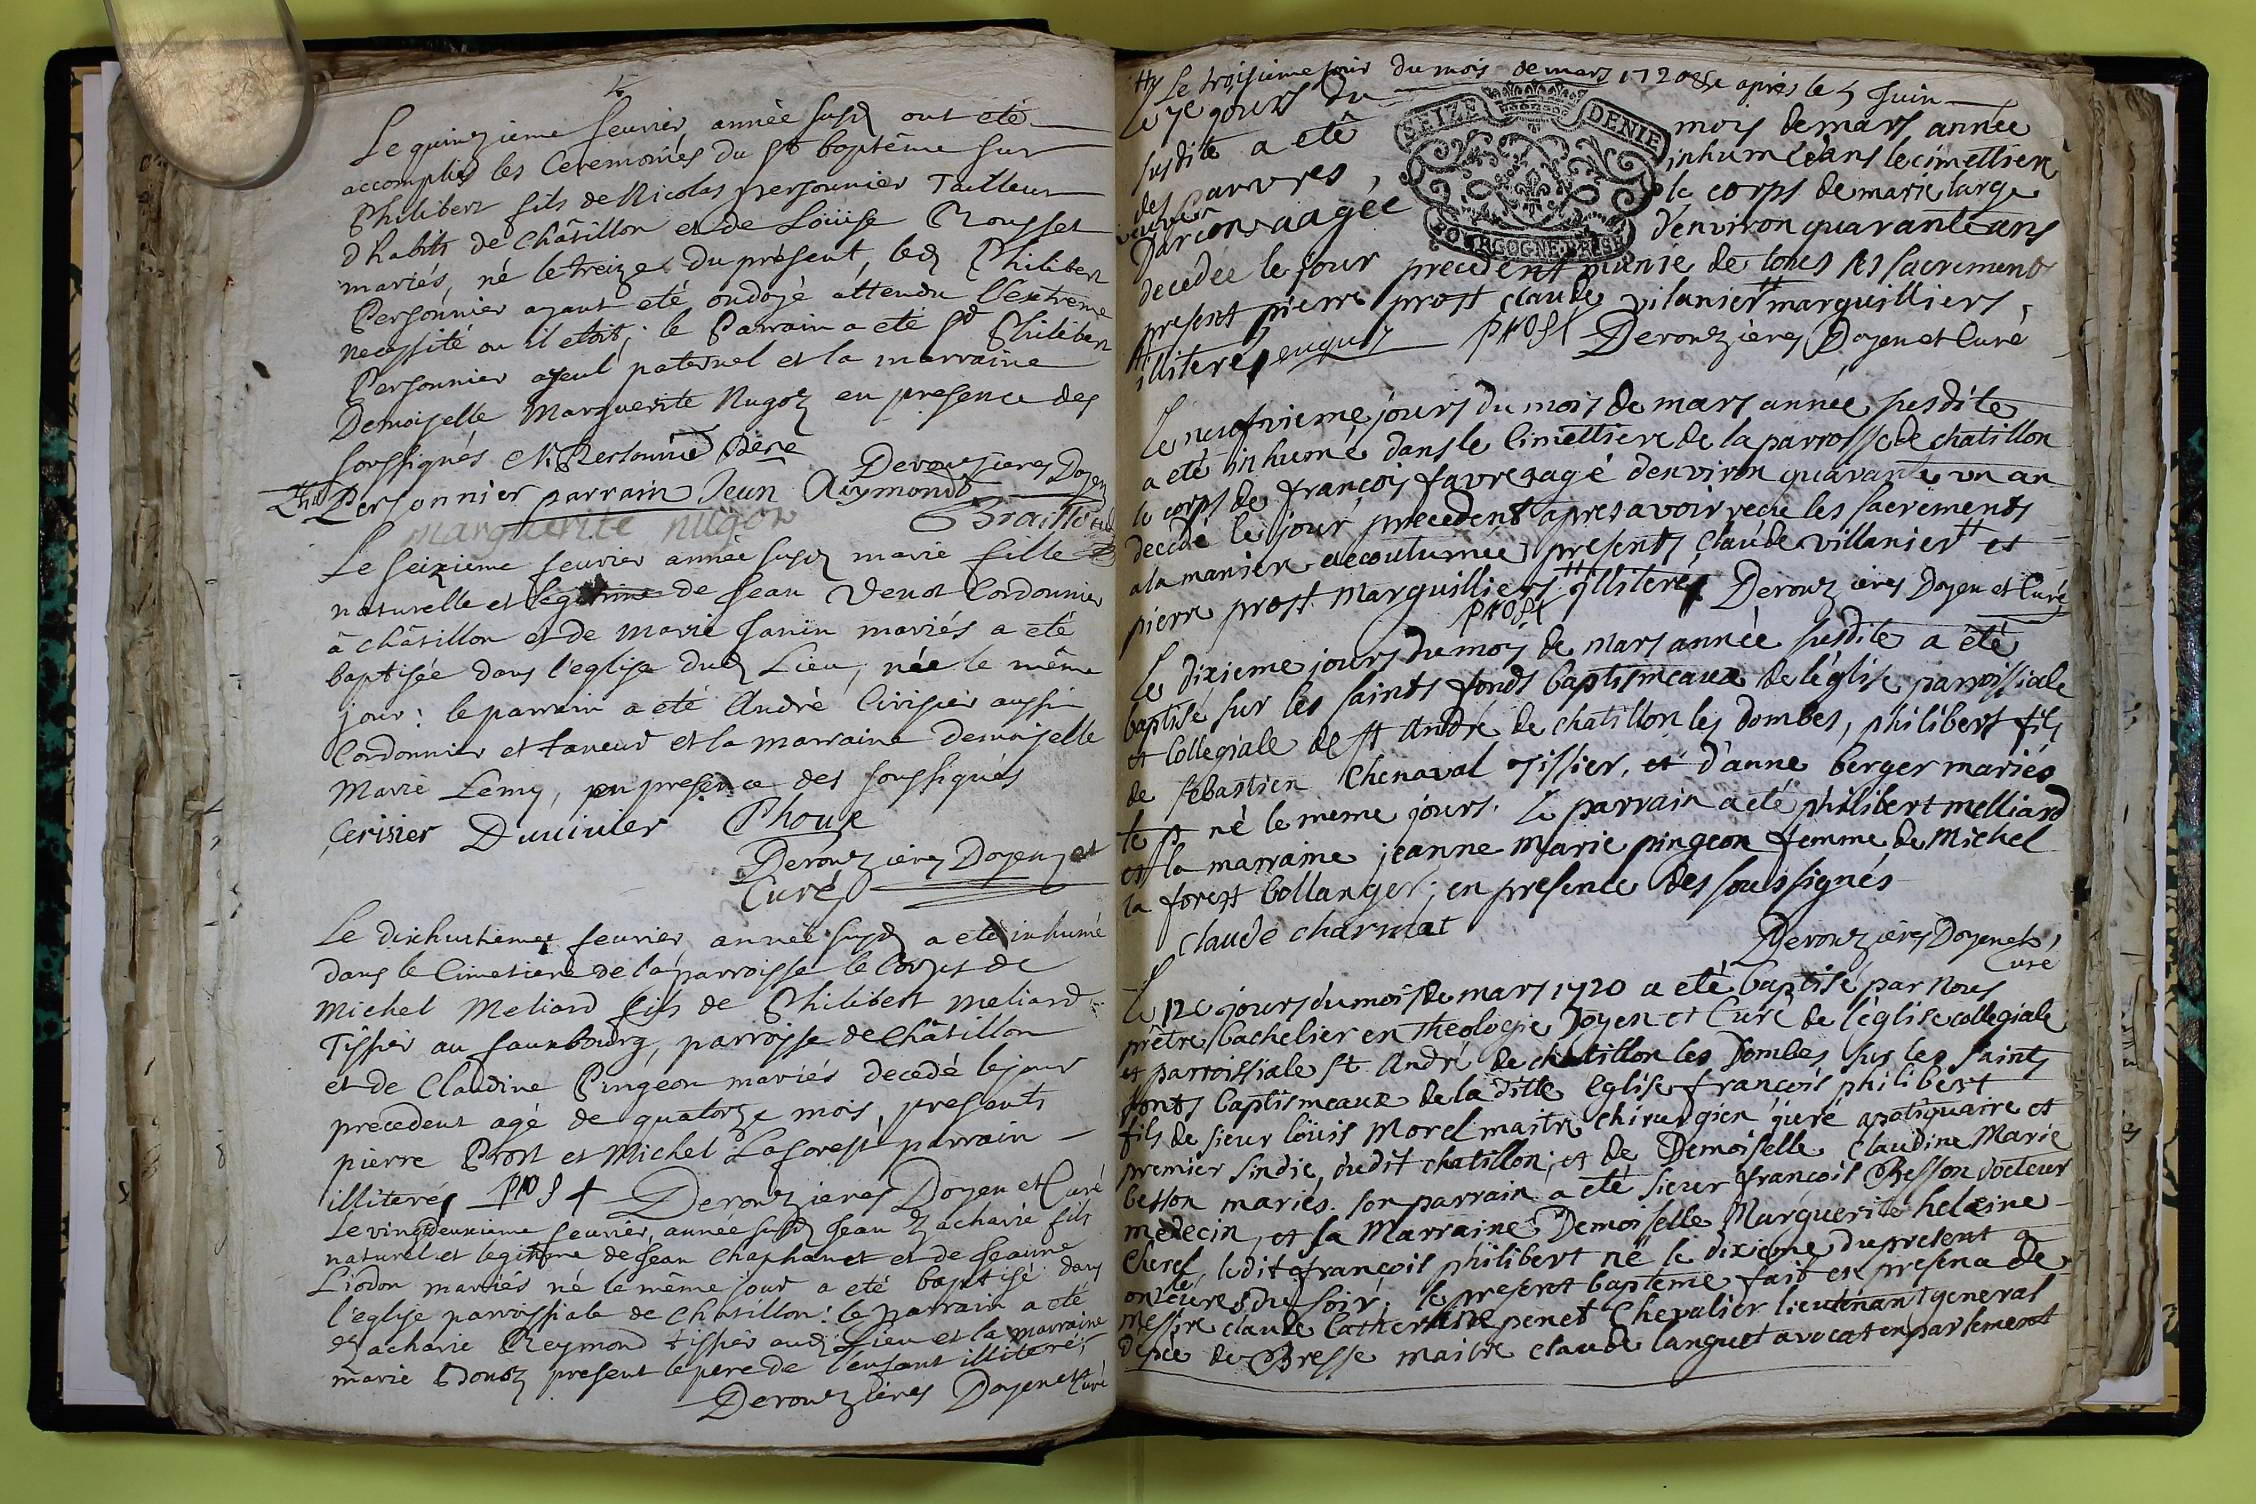 Le quinzieme fevrier année susd ont eté
accomplies les Ceremonies du St baptême sur
Philibert fils de Nicolas personnier Tailleur
d'habits de Châtillon et de Loüise Rousset
mariés, né le treize du présent, led Philibert
Personnier ayant eté ondoyé attendu l'extreme
necessité ou il etoit; le Parrain a eté Sr Philibert
Personnier ayeul paternel et la marraine
Demoiselle Marguerite Nugoz en presence des
soussignés N. Personnié Père Derouzieres Doyen
Personnier parrain Jean Aymond
marguerite nugoz
Le seizieme fevrier année susd marie fille
naturelle et legitime de Jean Venot Cordonnier
à châtillon et de marie Janin mariés a eté
baptisée dans l'eglise dud Lieu, née le même
jour: le parrain a eté André Cirisier aussi
Cordonnier et taneur et la marraine demoiselle
Marie Lemy, en presence des soussignés
Cerisier Duvivier Phoux
Derouzieres Doyen et
Curé
Le dixhuitieme fevrier année susd a eté inhumé
dans le Cimetiere de la parroisse le Corps de
Michel Meliard fils de Philibert meliard
Tissier au fauxbourg, parroisse de Châtillon
et de Claudine Pingeon mariés decedé le jour
precedent agé de quatorze mois, presents
pierre Prost et Michel Laforest parrain
illiterés prost Derouzieres Doyen et Curé
Le vingtdeuxieme fevrier, année susd Jean Zacharie fils
naturel et legitime de Jean Chaphanet et de Jeanne
Liodon mariés né le même jour a eté baptisé dans
l'eglise parroissiale de Chatillon: le parrain a eté
Zacharie Reymond tissier aud Lieu et la marraine
marie present le pere de l'enfant illiteré,
Derouzieres Doyen et Curé
Le troisieme jour du mois de mars 1720 après le 5 Juin
Le 7e jours du mois de mars année
susdite a eté inhumé dans le cimettiere
des pauvres, le corps de marie large
veuve Darcon aagée d'environ quarante ans
decedée le jour precedent munie de tous ses sacrements
present pierre prost claude vilanier marguilliers,
illiterés enquis prost Derouzieres Doyen et Curé
Le neufvieme jours du mois de mars année susdite
a eté inhumé dans le cimettiere de la parroisse de chatillon
le corps de françois favre agé denviron quarante un an
decedé le jour precedent apres avoir reçu les sacrements
a la maniere accoutumée presents Claude villanier et
pierre prost Marguilliers illiterés Derouzieres Doyen et Curé
prost
Le dixieme jours du mois de mars année susdite a été
baptisé sur les saints fonds baptismeaux de l'église parroissiale
et Collegiale de st André de chatillon les dombes, philibert fils
de sébastien Chenaval Tissier, et d'anne berger mariés
né le meme jours. Le parrain a eté philibert melliard
et la marraine jeanne Marie pingeon femme de Michel
la forest bollanger; en presence des soussignés
claude charmat
Derouzieres Doyen et
Curé
Le 12e jours du mois de mars 1720 a eté baptisé par Nous
prêtre Bachelier en Theologie Doyen et Curé de l'église collegiale
et parroissiale st André de chatillon les Dombes sur les saints
fonts baptismeaux de la ditte Eglise françois philibert
fils de sieur loüis Morel maitre chirurgien juré apotiquaire et
premier sindic, dudit chatillon; et de Demoiselle Claudine Marie
besson mariés. son parrain a eté sieur françois Besson docteur
medecin, et sa Marraine Demoiselle Marguerite heleine
Cherel, ledit françois philibert né le dixieme du present a
onze heures du soir; le present bapteme fait en presence de
Messire claude Catherine penet Chevalier lieutenant general
de Bresse maitre claude languet avocat en parlement
SEIZE DENIE
BOURGOGNE BRESSE